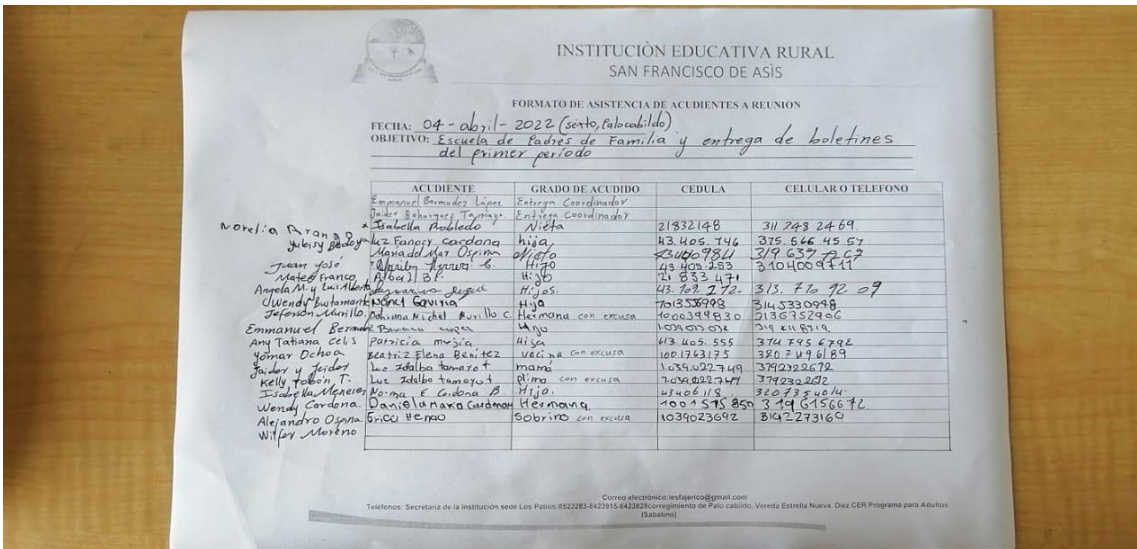 INSTITUCIÒN EDUCATIVA RURAL
SAN FRANCISCO DE ASÌS
FORMATO DE ASISTENCIA DE ACUDIENTES A REUNION
FECHA: 04 - abril - 2022 (sexto, Palocabildo)
OBJETIVO: Escuela de Padres de Familia y entrega de boletines
del primer período
ACUDIENTE GRADO DE ACUDIDO CEDULA CELULAR O TELEFONO
Emmanuel Bermudez López Entrega Coordinador
Jaider Bohorquez Tamayo. Entrega Coordinador
Norelia Arango Isabella Robledo Nieta 21832148 311 348 2469.
Yuleisy Bedoya Luz Fanory Cardona hija, 43.405.746 375.566 45 57
Maria del Mar Ospina Nieto 319 639 7267
Juan José Hijo 43 405.253 3104009711
Mateo Franco, B.F. Hijo 21 833 471
Angela M. y Luis Alberto Hijos. 43.109.272- 313. 710 92 09
Wendy Bustamante Nancy Gaviria Hija 3145330998
Jeferson Murillo. Dahiana Michel Murillo C. Hermana con excusa 1000399830 3136752906
Emmanuel Hijo
Any Tatiana Celis Patricia mejia Hija 43.405.555 314 795 6792
Yomar Ochoa Beatriz Elena Benítez Vecina con excusa 1001763175 3207496189
Jaider y Jeider Luz Idalba tamayo t mamá 1.039.022749 3792322672
Kelly Tobón T. Luz Idalba tamayo t prima con excusa
Isabella Meneses Norma E Cardona B Hija.
Wendy Cardona. Daniela Maria Cardona Hermana 3196156672
Alejandro Ospina Erica Henao Sobrino con excusa 1039023692 3142273160
Wilfer Moreno
Correo electrónico:iesfajerico@gmail.com
Teléfonos: Secretaria de la Institución sede Los Patios:8523283-8423915-8423828corregimiento de Palo cabildo, Vereda Estrella Nueva. Diez CER Programa para Adultos
(Sabatino)